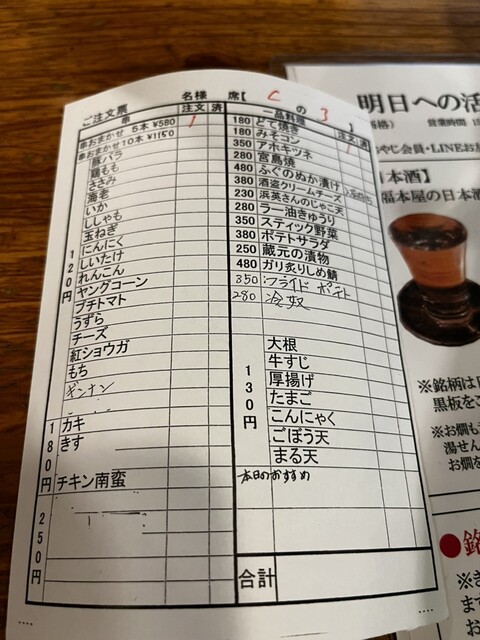 ご注文票
名様 席【 C の 3 】
串 注文 済
串おまかせ 5本 ¥580 1
串おまかせ10本 ¥1150
120円
豚バラ
鶏もも
ささみ
海老
いか
ししゃも
玉ねぎ
にんにく
しいたけ
れんこん
ヤングコーン
プチトマト
うずら
チーズ
紅ショウガ
もち
ギンナン
180円
カキ
きす
チキン南蛮
250円
一品料理 注文 済
180 どて焼き 1
180 みそこン
350 アホキツネ
280 宮島焼
480 ふぐのぬか漬け
380 酒盗クリームチーズ
230 浜英さんのじゃこ天
280 ラー油きゅうり
350 スティック野菜
380 ポテトサラダ
250 蔵元の漬物
480 ガリ炙りしめ鯖
350 フライド ポテト
280 冷奴
130円
大根
牛すじ
厚揚げ
たまご
こんにゃく
ごぼう天
まる天
本日のおすすめ
合計
明日への活
営業時間
やじ会員・LINEお友
日本酒】
福本屋の日本酒
※銘柄は
黒板をご
※お燗も
湯せん
お燗を
●銘